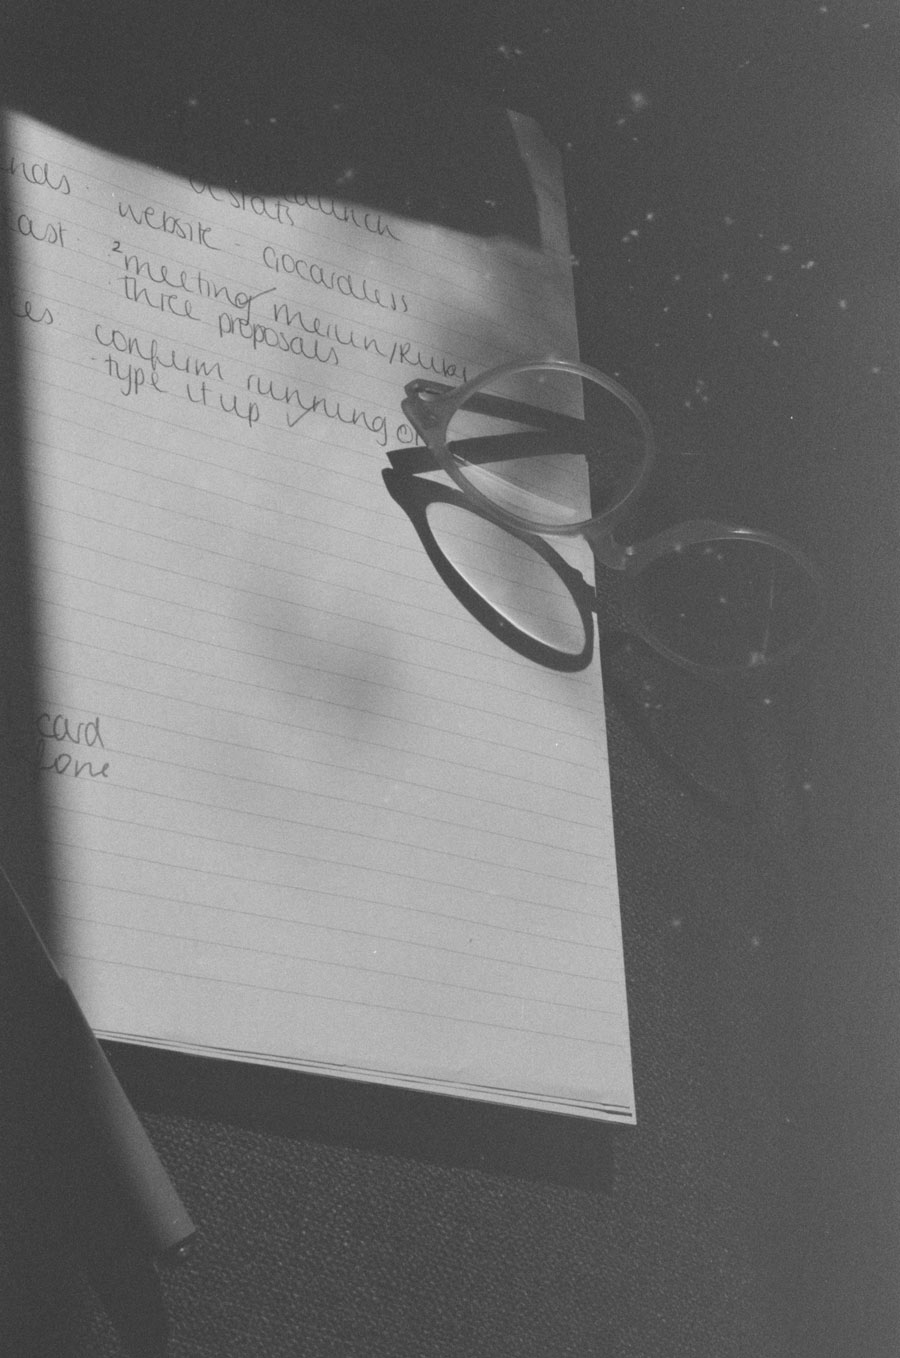 nds. launch
website - Gocardless
ast. ² meeting merlin/Ruby
three proposals
es confirm running o
type it up ✓
card
lone